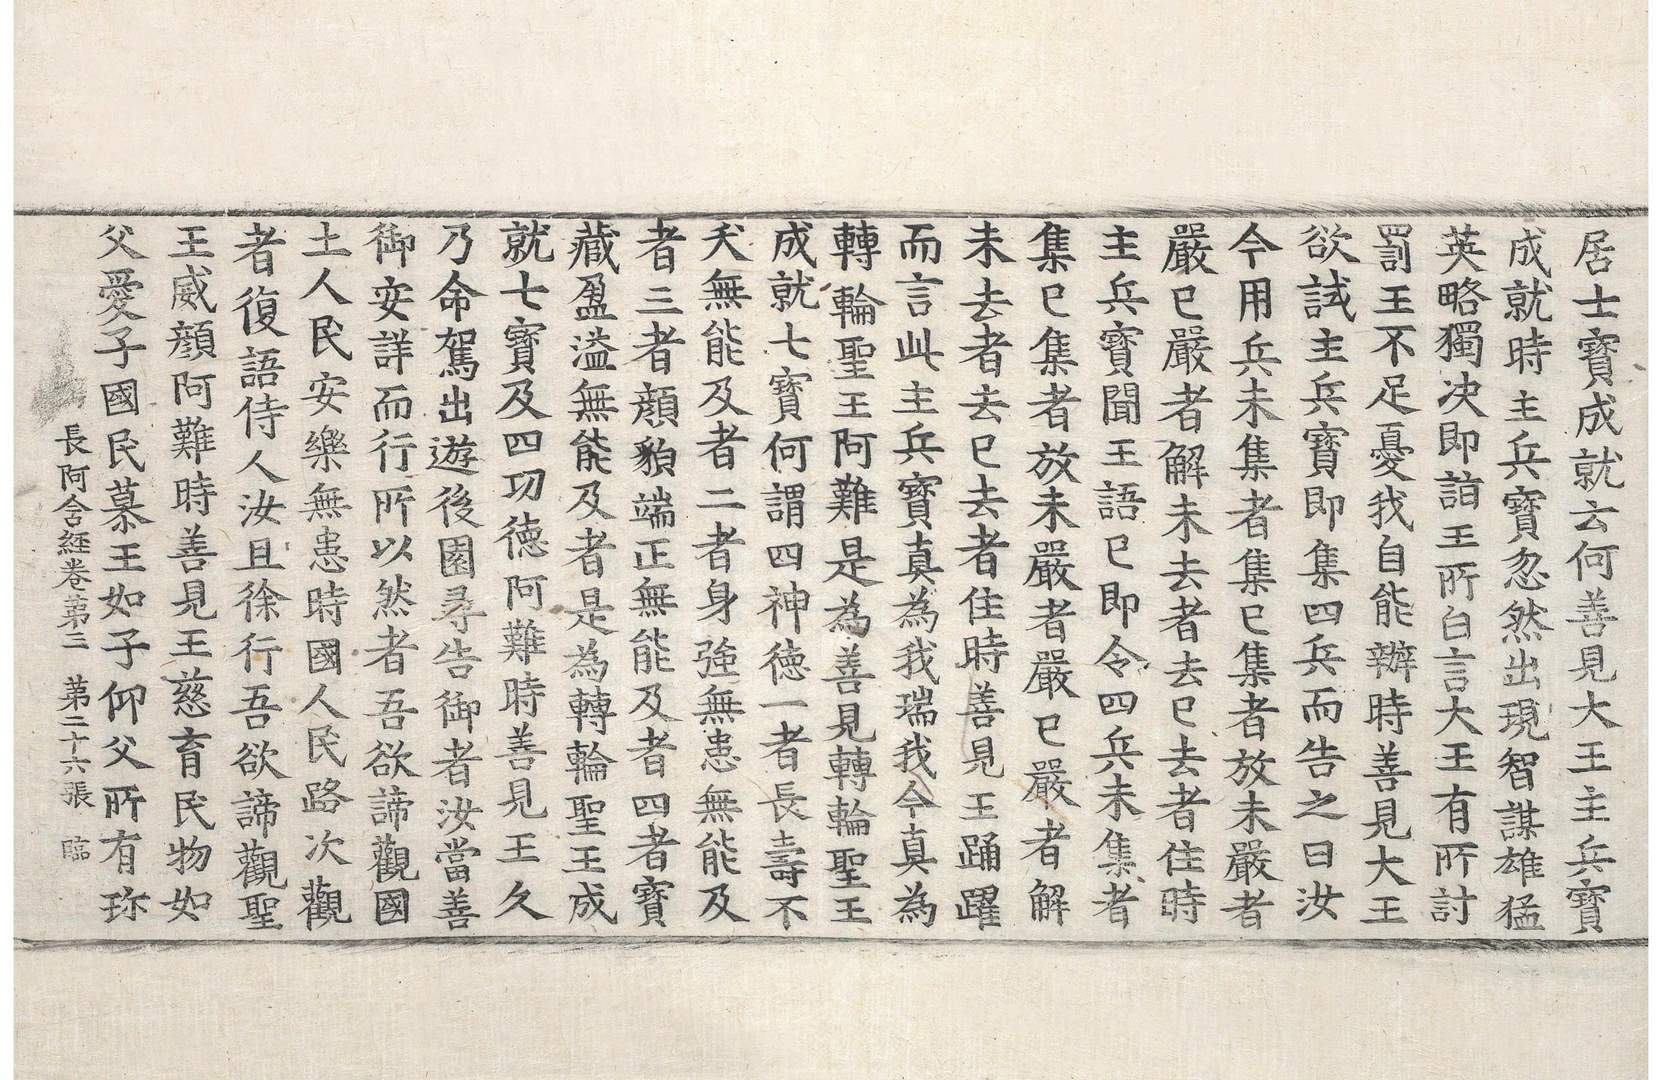 居士寶成就云何善見大王主兵寶
成就時主兵寶忽然出現智謀雄猛
英略獨決即詣王所白言大王有所討
罰王不足憂我自能辦時善見大王
欲試主兵寶即集四兵而告之曰汝
今用兵未集者集已集者放未嚴者
嚴已嚴者解未去者去已去者住時
主兵寶聞王語已即令四兵未集者
集已集者放未嚴者嚴已嚴者解
未去者去已去者住時善見王踊躍
而言此主兵寶真為我瑞我今真為
轉輪聖王阿難是為善見轉輪聖王
成就七寶何謂四神徳一者長壽不
夭無能及者二者身強無患無能及
者三者顔貌端正無能及者四者寶
藏盈溢無能及者是為轉輪聖王成
就七寶及四功徳阿難時善見王久
乃命駕出遊後園尋告御者汝當善
御安詳而行所以然者吾欲諦觀國
土人民安樂無患時國人民路次觀
者復語侍人汝且徐行吾欲諦觀聖
王威顔阿難時善見王慈育民物如
父愛子國民慕王如子仰父所有珎
長阿含経卷第三 第二十六張 臨